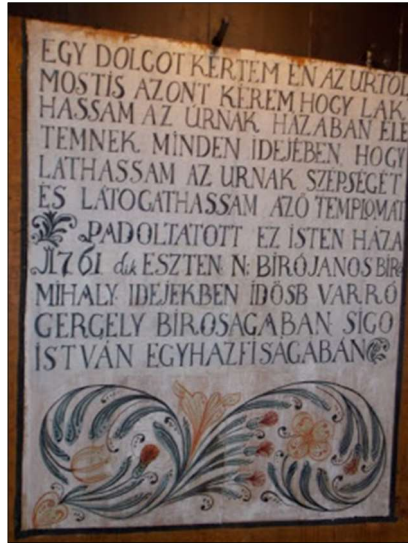 EGY DOLGOT KERTEM EN AZ URTOL
MOSTIS AZONT KEREM HOGY LAK
HASSAM AZ URNAK HAZABAN ELE
TEMNEK MINDEN IDEJEBEN, HOGY
LATHASSAM AZ URNAK SZEPSEGET
ÉS LÁTOGATHASSAM AZÖ TEMPLOMAT
PADOLTATOTT EZ ISTEN HAZA
1761 dik ESZTEN: N: BIRÓ JANOS BIRO
MIHALY IDEJEKBEN IDÖSB VARRÓ
GERGELY BIROSAGABAN SIGO
ISTVÁN EGYHAZFISAGABAN